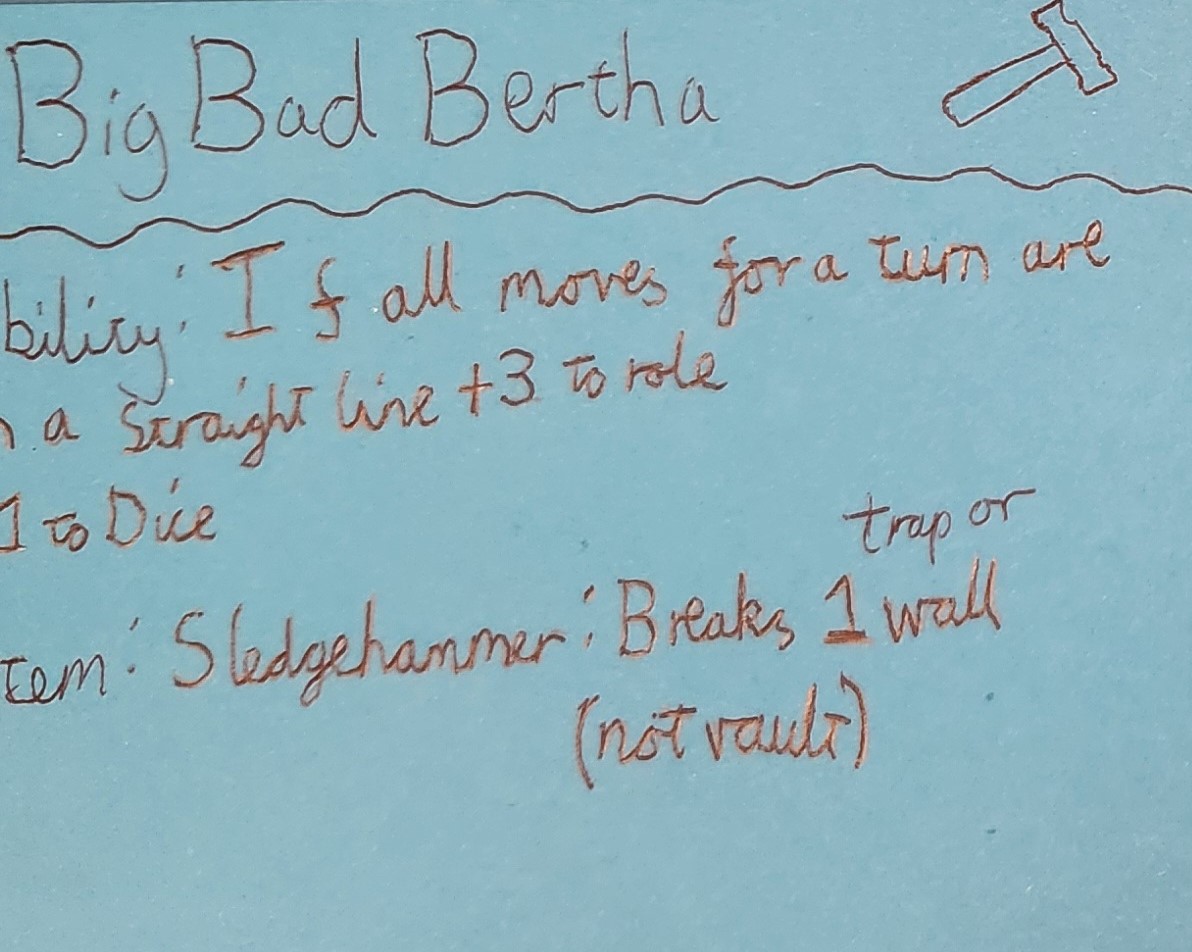 Big Bad Bertha
bility: If all moves for a turn are
a straight line +3 to role
1 to Dice
trap or
tem: Sledgehammer: Breaks 1 wall
(not vault)